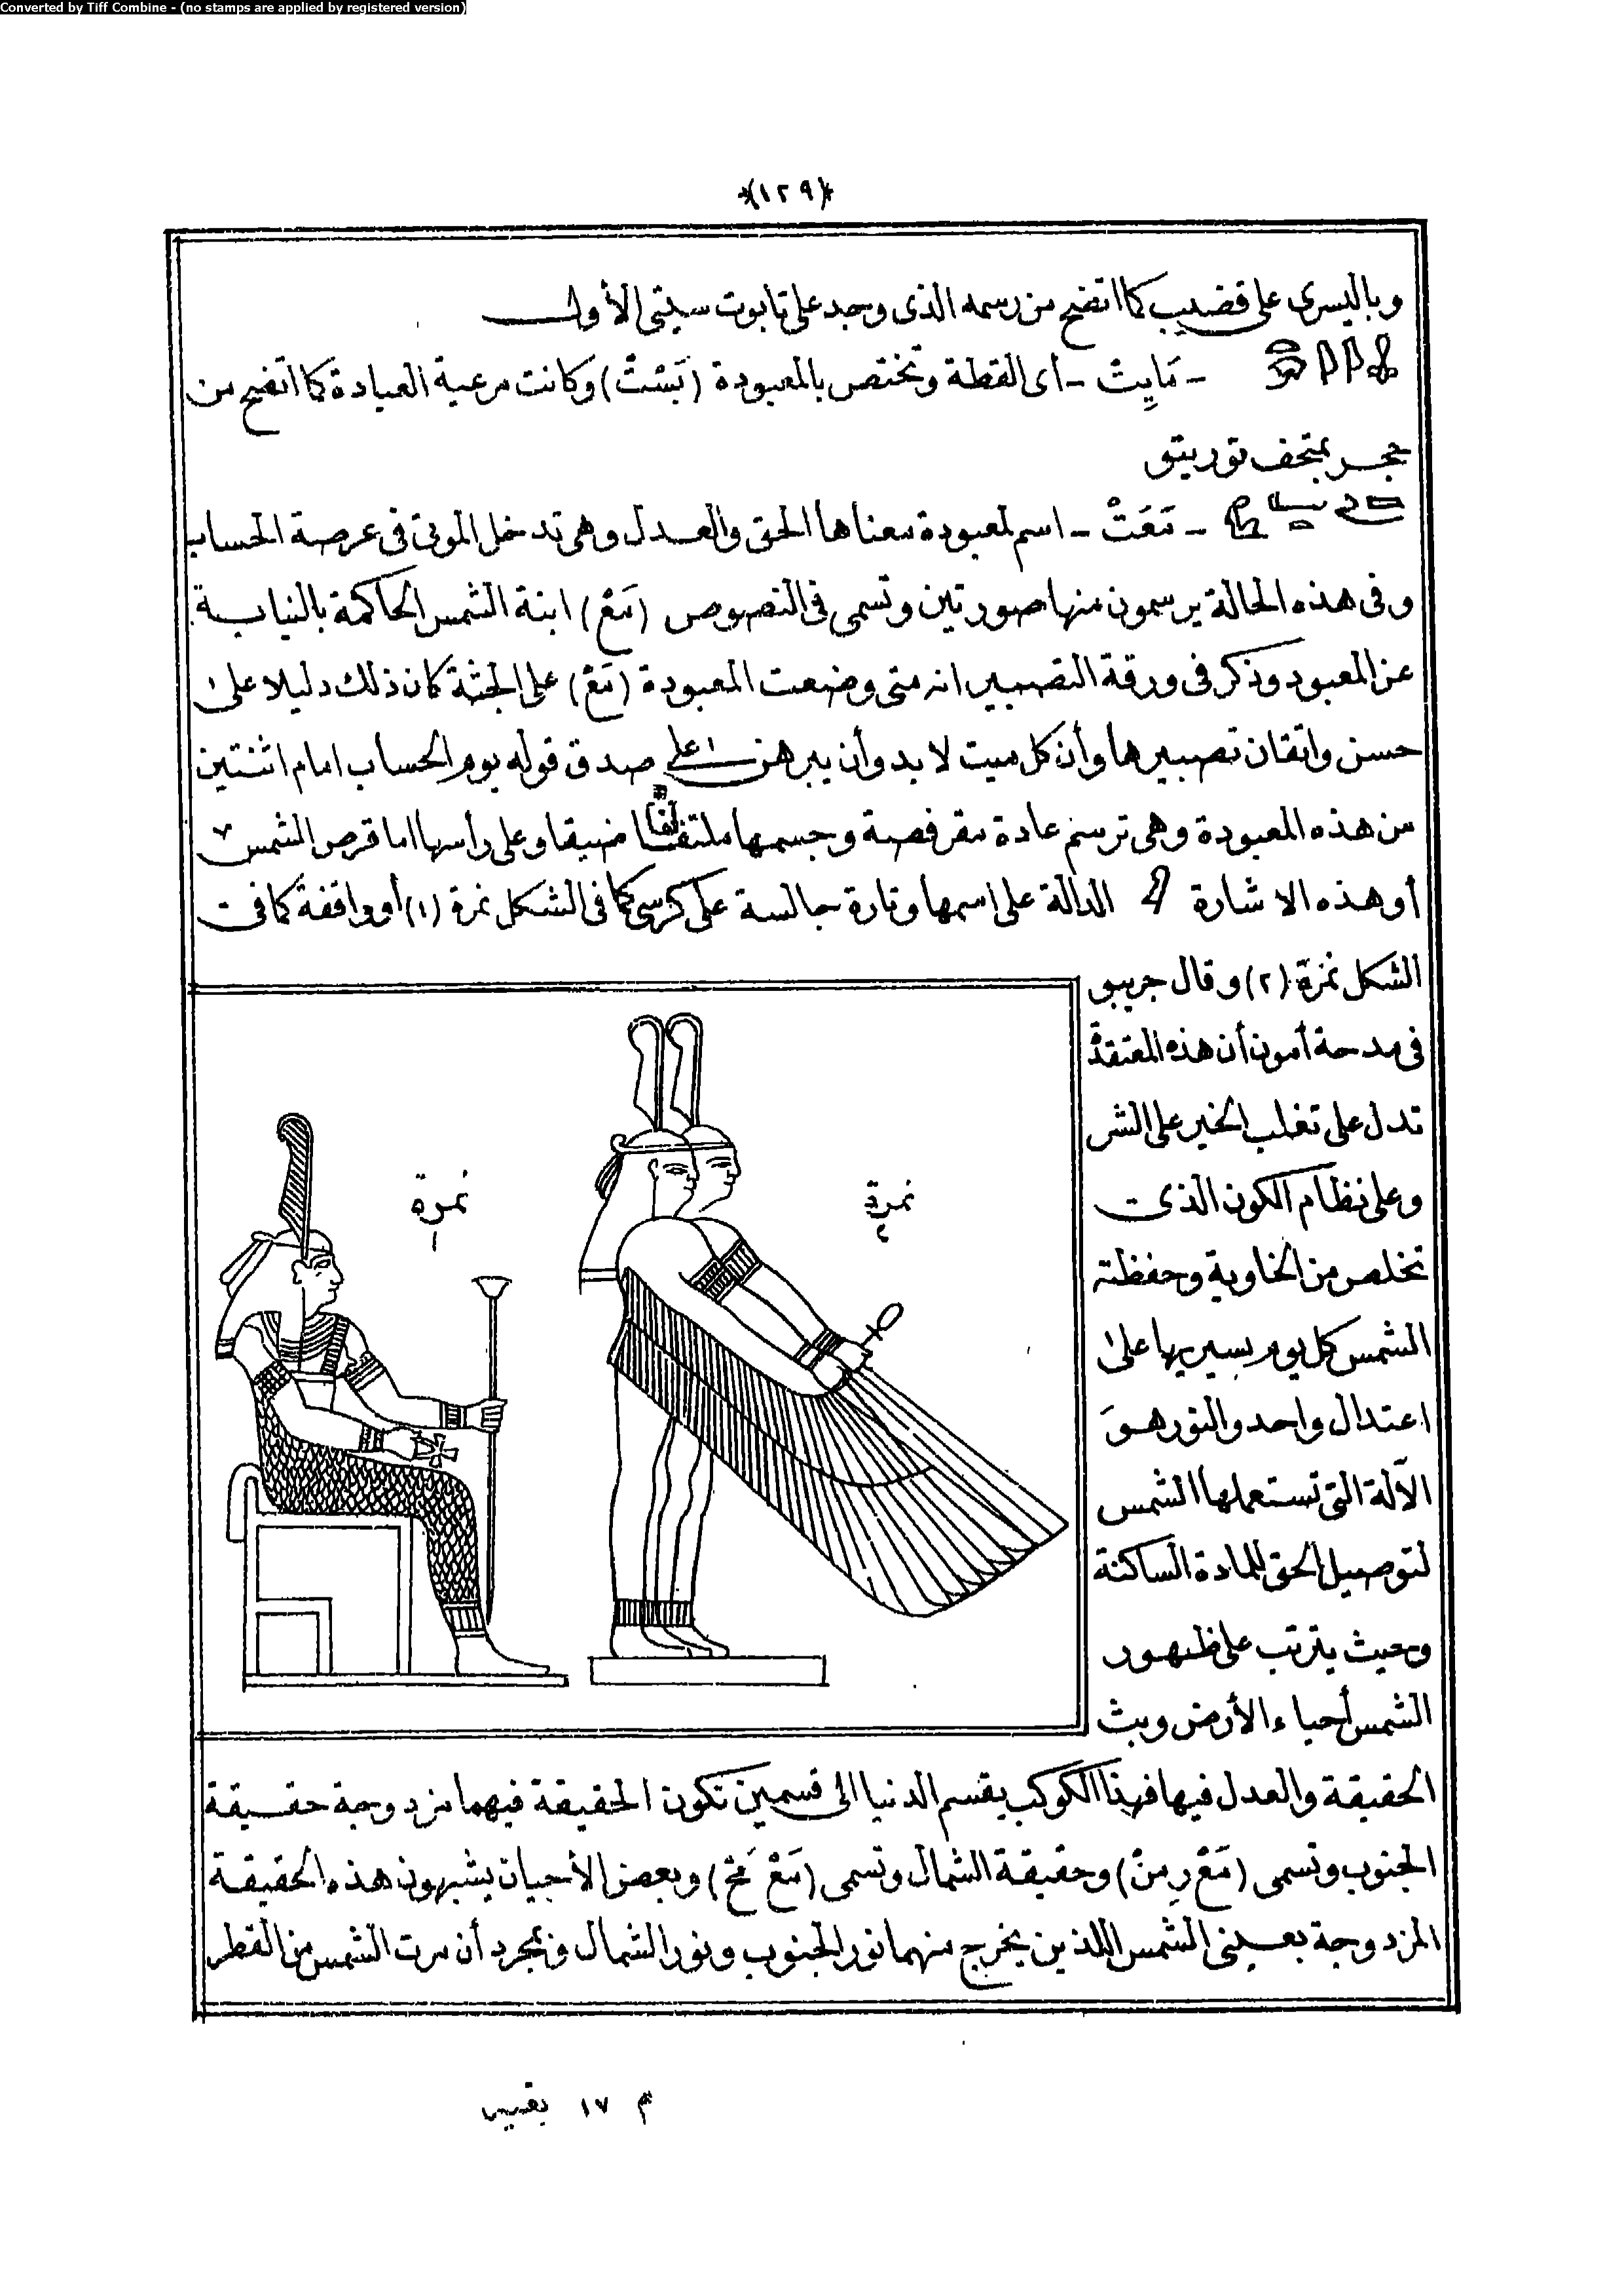 Converted by Tiff Combine - (no stamps are applied by registered version)
*(١٢٩)*
وباليسرى على قضيب كما اتضح من رسمه الذى وجد على تابوت سيتى الأول
- مَايِتْ - أى القطة وتختص بالمعبودة (بَسْتْ) وكانت مرعية العبادة كما اتضح من
حجر بمتحف تورينو
- مَعَتْ - اسم لمعبودة معناها الحق والعدل وهى تدخل الموتى فى عرصة الحساب
وفى هذه الحالة يرسمون منها صورتين وتسمى فى النصوص (مَعْ) ابنة الشمس الحاكمة بالنيابة
عن المعبود وذكر فى ورقة التصبير انه متى وضعت المعبودة (مَعْ) على الجثة كان ذلك دليلا على
حسن واتقان تصبيرها وأن كل ميت لا بد وأن يبرهن على صدق قوله يوم الحساب امام اثنتين
من هذه المعبودة وهى ترسم عادة مقرفصة وجسمها ملتف ضيقا وعلى رأسها اما قرص الشمس
أو هذه الاشارة الدالة على اسمها وتارة جالسة على كرسى كما فى الشكل نمرة (١) أو واقفة كما فى
الشكل نمرة (٢) وقال جريبو
فى مدحة أمون أن هذه المعتقدة
تدل على تغلب الخير على الشر
وعلى نظام الكون الذى
تخلص من الخاوية وحفظته
الشمس كل يوم بسيرها على
اعتدال واحد والنور هو
الآلة التى تستعملها الشمس
لتوصيل الحق للمادة الساكنة
وحيث يترتب على ظهور
الشمس أحياء الأرض وبث
نمرة ١
نمرة ٢
الحقيقة والعدل فيها فهذا الكوكب يقسم الدنيا الى قسمين تكون الحقيقة فيهما مزدوجة حقيقة
الجنوب وتسمى (مَعْ رِمِنْ) وحقيقة الشمال وتسمى (مَعْ مَحْ) وبعض الأحيان يشبهون هذه الحقيقة
المزدوجة بعينى الشمس اللذين يخرج منهما نور الجنوب ونور الشمال وبمجرد أن مرت الشمس من القطر
م ١٧